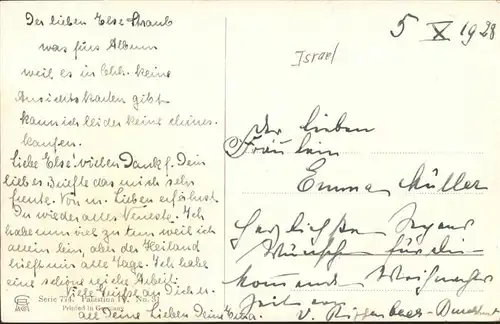 Der lieben Else Straub
was fürs Album
weil es in keine
Ansichtskarten gibt
kann ich leider keine
kaufen.
Liebe Else! vielen Dank f. Dein
liebes Briefle das mich sehr
freute. Von m. Lieben erfährst
Du wieder alles Neueste. Ich
habe nun viel zu tun weil ich
allein bin, aber der Heiland
hilft mir alle Tage. Ich habe
eine schöne reiche Arbeit.
Viele Grüsse an Dich u.
all Deine Lieben Deine
Serie 774. Palästina No. 31
Printed in Germany
5 X 1928
Israel
Der lieben
Fräulein
Emma Müller
Herzlichsten Segens
Wünsche für die
kommende Weihnachts
Zeit von
v.